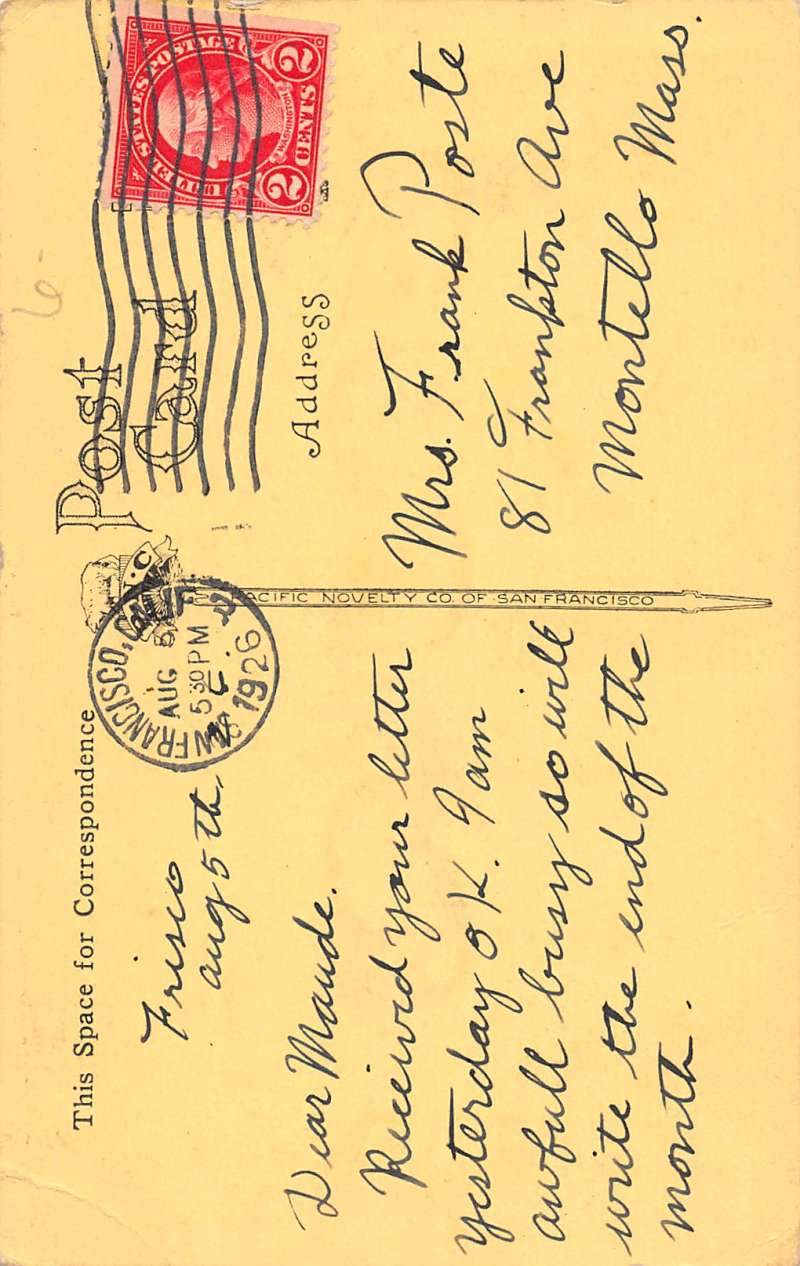 This Space for Correspondence
Post
Card
Address
UNITED STATES POSTAGE
WASHINGTON
2 CENTS 2
SAN FRANCISCO, CALIF.
AUG 5
5 30 PM
1926
PACIFIC NOVELTY CO. OF SAN FRANCISCO
6-
Frisco
Aug 5th.
Dear Maude.
Received your letter
yesterday O K. I am
awfull busy so will
write the end of the
month.
Mrs. Frank Poste
81 Frankton Ave
Montello Mass.